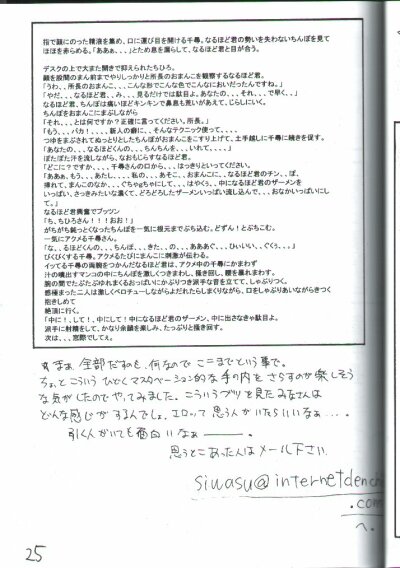 指で顔にのった精液を集め、口に運び目を開ける千尋。なるほど君の勢いを失わないちんぽを見て
ほほを赤らめる。「ああぁ、、、」とため息を漏らして、なるほど君と目が合う。
デスクの上で大また開きで抑えられたちひろ。
顔を股間のまん前までやりしっかりと所長のおまんこを観察するなるほど君。
「うわ、、所長のおまんこ、、、こんな形でこんな色でこんなにおいだったんですね。」
「やだ、、、なるほど君、、み、、、見るだけでは駄目よ。あなたの、、、それ、、、で早く、、」
なるほど君、ちんぽは痛いほどキンキンで鼻息も荒いがあえて、じらしにいく。
ちんぽをおまんこにまぶしながら
「それ、、、とは何ですか？正確に言ってください。所長。」
「もう、、、バカ！、、、、新人の癖に、、そんなテクニック使って、、、、
つゆをまぶされてぬっとりとしたちんぽがおまんこをこすり上げて、土手越しに千尋に続きを促す。
「あなたの、、、なるほどくんの、、、ちんちんを、、いれて、、、、」
ぽたぽた汗を流しながら、なおもじらすなるほど君。
「どこに？ですか、、、、千尋さんの口から、、、はっきりといってください。
「ああぁ、もう、、、あたし、、、私の、、、あそこ、、おまんこに、、、なるほど君のチン、、ぽ、
挿れて、まんこのなか、、、ぐちゃgちゃにして、、、はやくう、、中になるほど君のザーメンを
いっぱい、さっきみたいな濃くて、どろどろしたザーメンいっぱい流し込んで、、、おなかいっぱいにし
て。」
なるほど君興奮でプッツン
「ち、ちひろさん！！！おお！」
がちがち鈍っとくなったちんぽを一気に根元までぶち込む。どずん！とぶちこむ。
一気にアクメる千尋さん。
「な、、るほどくんの、、、ちんぽ、、、きた、、の、、、ああああぐ、、、ひいいい、ぐくう。。。」
びくびくする千尋。アクメるたびにまんこに刺激が伝わる。
イッてる千尋の両腕をつかんだなるほど君は、アクメ中の千尋にかまわず
汁の噴出すマンコの中にちんぽを激しくつきまわし、掻き回し、腰を暴れまわす。
腕の間でたぷたぷゆれまくるおっぱいにかぶりつき派手な音を立てて、しゃぶりつく。
感極まった二人は激しくベロチューしながらよだれたらしまくりながら、口をしゃぶりあいながらきつく
抱きしめて
絶頂に行く。
「中に！、して！、中にして！中になるほど君のザーメン、中に出さなきゃ駄目よ。
派手に射精をして、かなり余韻を楽しみ、たっぷりと掻き回す。
次は、、、窓際でしてぇ。
すまぬ、全部だすのも、何なので ここまでという事で。
ちょとこういう ひどくマスタベーション的な 手の内を さらすのが楽しそう
な気がしたのでやってみました。こういうプリを見た みなさんは
どんな感じがするんでしょ。エロって思う人がいたらいいなぁ・・・・。
引く人がいても面白いなぁ———。
思うとこあった人はメール下さい
siwasu@internetdenc
.com
へ。
25